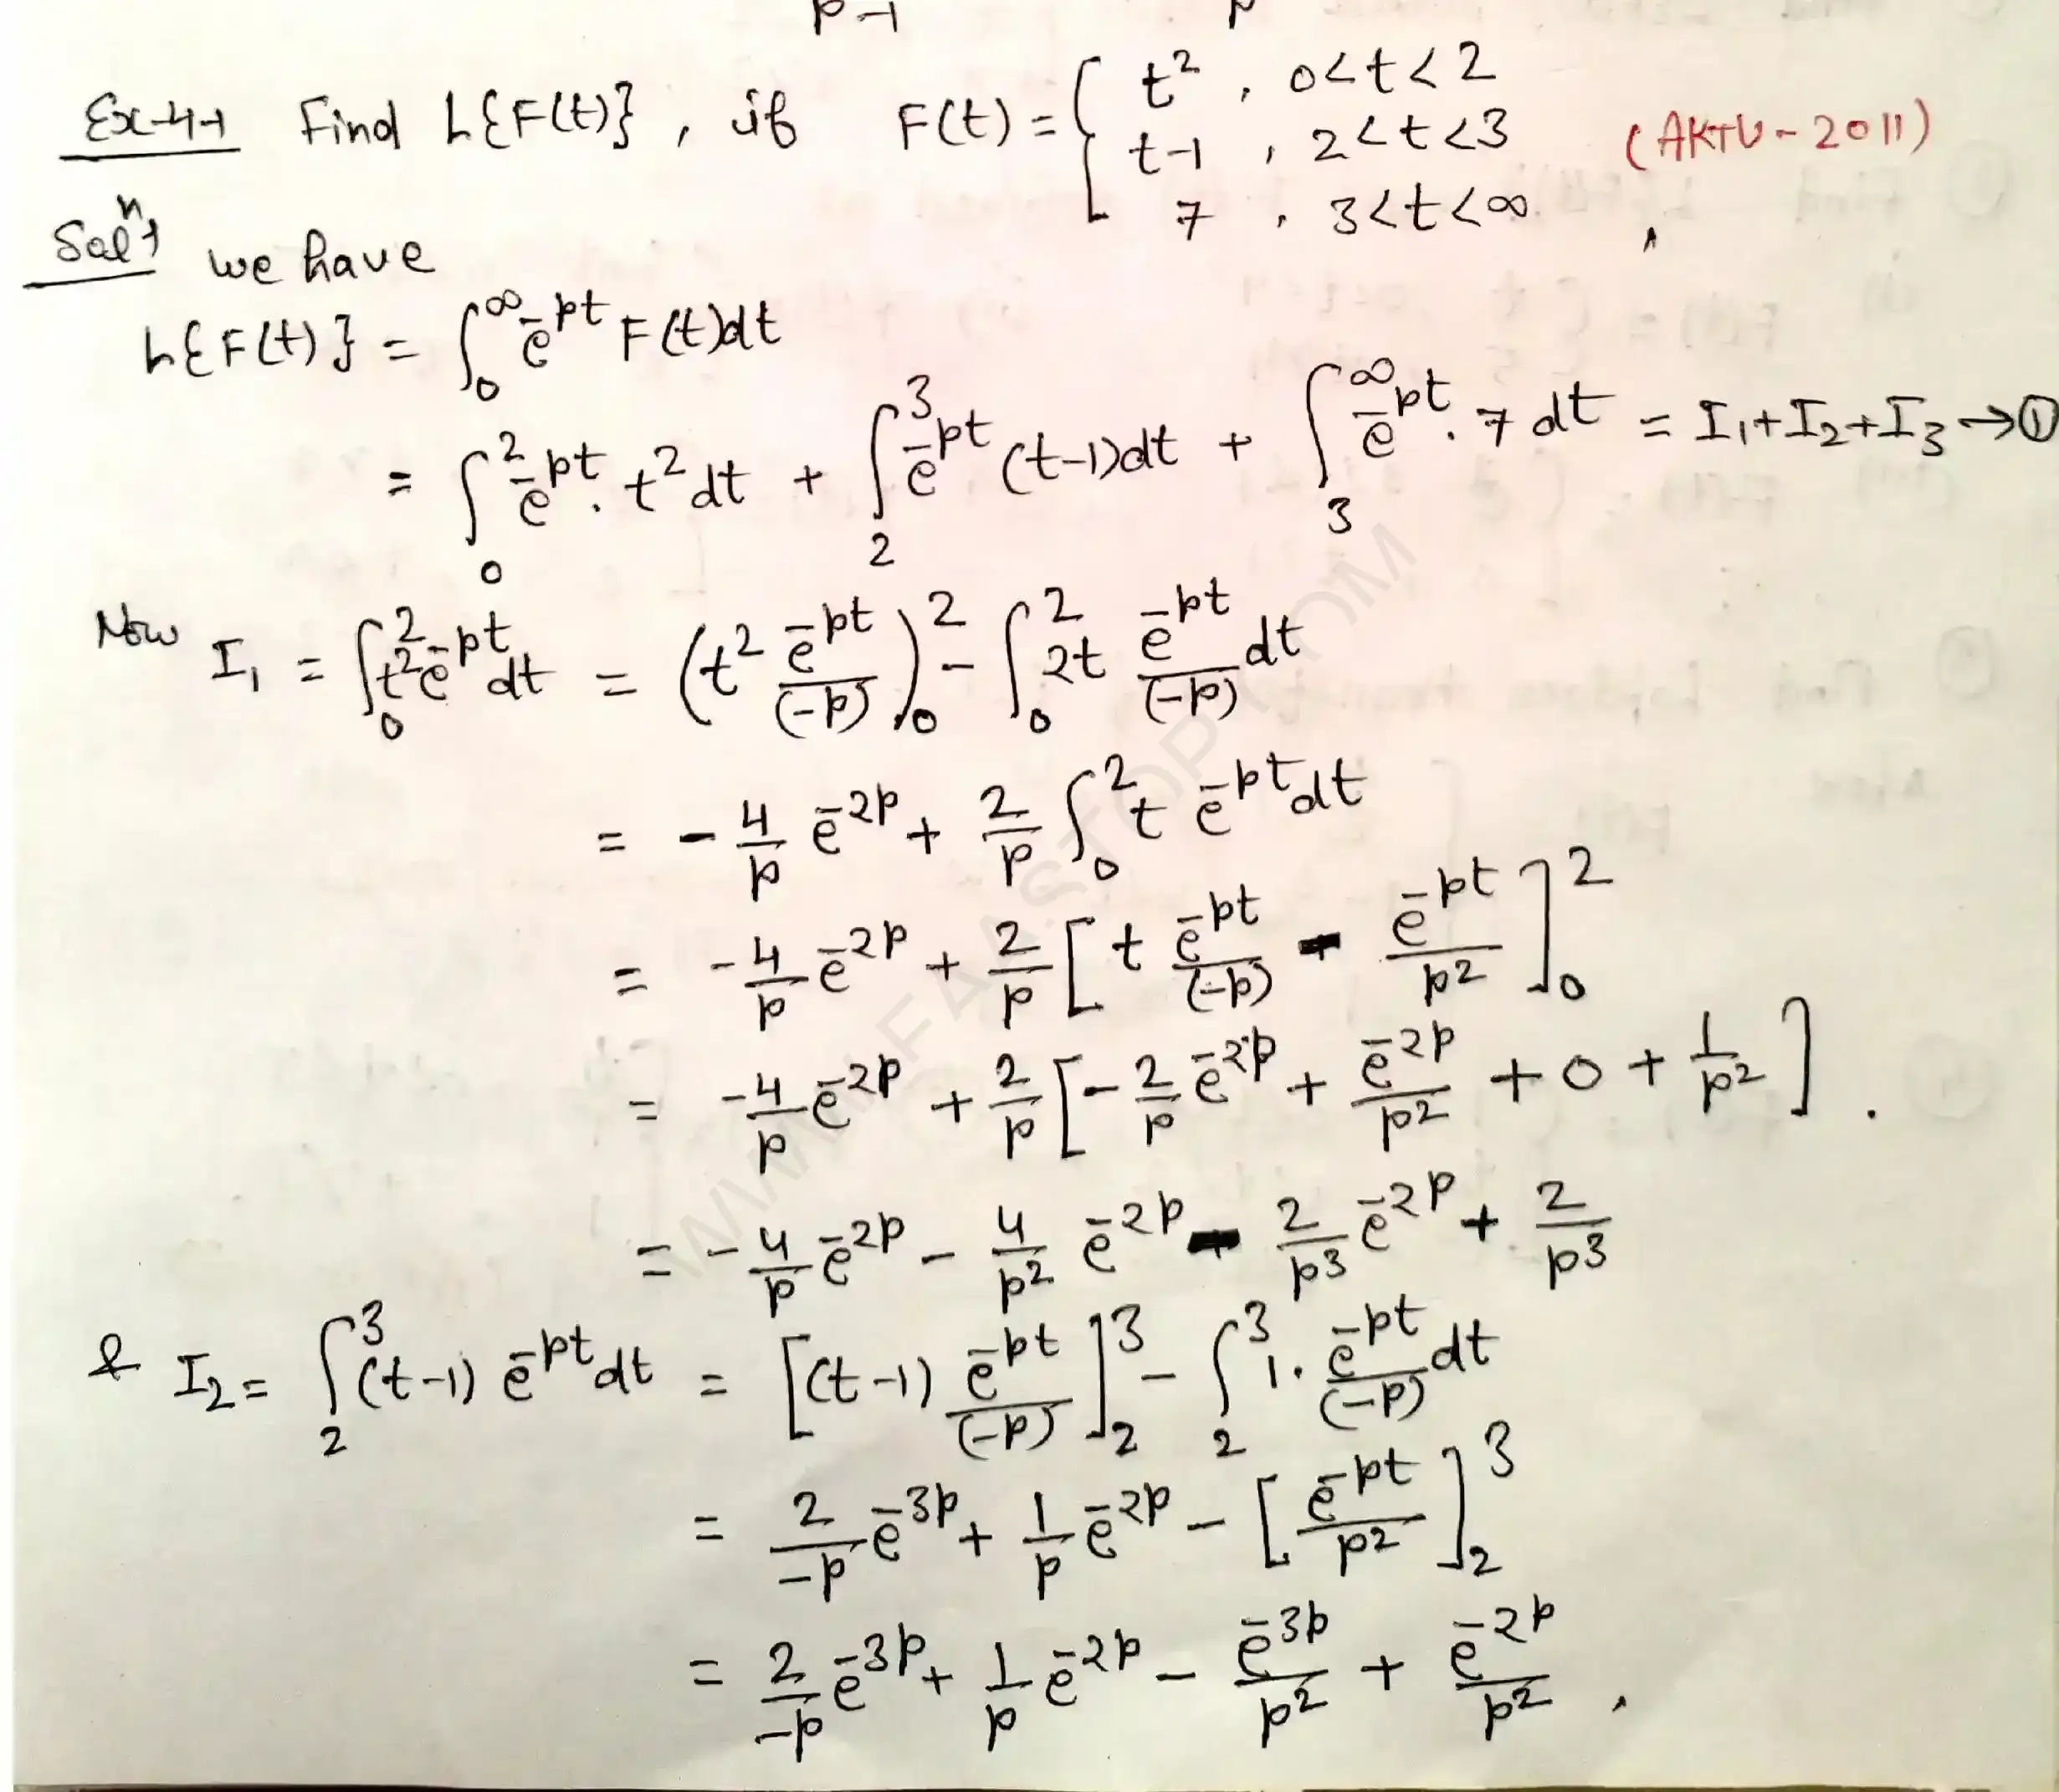 p-1 p
Ex-4→ Find L{F(t)}, if F(t) = { t², 0<t<2
t-1, 2<t<3 (AKTU-2011)
7, 3<t<∞
Solⁿ→ we have
L{F(t)} = ∫₀^∞ e^{-pt} F(t)dt
= ∫₀² e^{-pt}. t² dt + ∫₂³ e^{-pt} (t-1)dt + ∫₃^∞ e^{-pt}. 7 dt = I₁+I₂+I₃ →①
Now I₁ = ∫₀² t² e^{-pt} dt = (t² e^{-pt}/(-p))₀² - ∫₀² 2t e^{-pt}/(-p) dt
= - 4/p e^{-2p} + 2/p ∫₀² t e^{-pt} dt
= -4/p e^{-2p} + 2/p [t e^{-pt}/(-p) - e^{-pt}/p²]₀²
= -4/p e^{-2p} + 2/p [-2/p e^{-2p} + e^{-2p}/p² + 0 + 1/p²].
= -4/p e^{-2p} - 4/p² e^{-2p} - 2/p³ e^{-2p} + 2/p³
& I₂ = ∫₂³ (t-1) e^{-pt} dt = [(t-1) e^{-pt}/(-p)]₂³ - ∫₂³ 1. e^{-pt}/(-p) dt
= 2/-p e^{-3p} + 1/p e^{-2p} - [e^{-pt}/p²]₂³
= 2/-p e^{-3p} + 1/p e^{-2p} - e^{-3p}/p² + e^{-2p}/p².